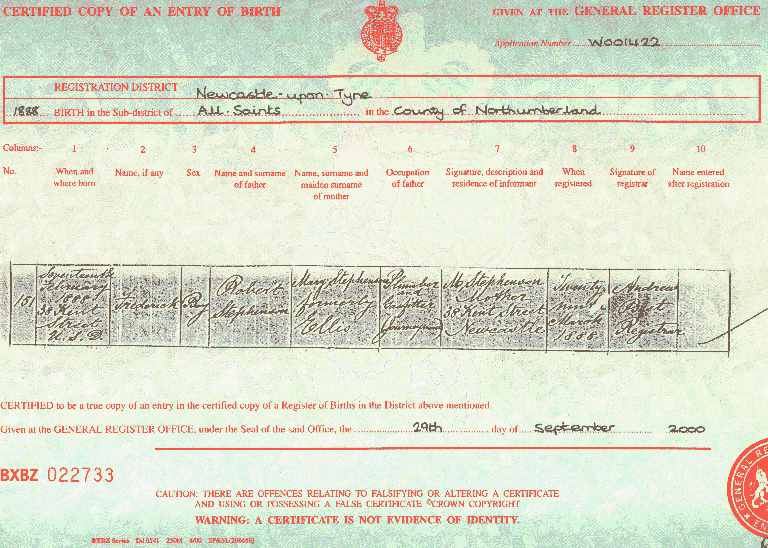 CERTIFIED COPY OF AN ENTRY OF BIRTH
GIVEN AT THE GENERAL REGISTER OFFICE
Application Number W001422
REGISTRATION DISTRICT Newcastle-upon-Tyne
1888 BIRTH in the Sub-district of All Saints in the County of Northumberland
Columns:- 1 2 3 4 5 6 7 8 9 10
No. When and where born Name, if any Sex Name and surname of father Name, surname and maiden surname of mother Occupation of father Signature, description and residence of informant When registered Signature of registrar Name entered after registration
151
Seventeenth
February
1888
38 Kent
Street
U.S.D
Frederick
Boy
Robert
Stephenson
Mary Stephenson
formerly
Ellis
Plumber
and
Gasfitter
Journeyman
M Stephenson
Mother
38 Kent Street
Newcastle
Twenty
ninth
March
1888
Andrew
Registrar
CERTIFIED to be a true copy of an entry in the certified copy of a Register of Births in the District above mentioned.
Given at the GENERAL REGISTER OFFICE, under the Seal of the said Office, the 29th day of September 2000
BXBZ 022733
CAUTION: THERE ARE OFFENCES RELATING TO FALSIFYING OR ALTERING A CERTIFICATE
AND USING OR POSSESSING A FALSE CERTIFICATE ©CROWN COPYRIGHT
WARNING: A CERTIFICATE IS NOT EVIDENCE OF IDENTITY.
BXBZ Series
GENERAL RE